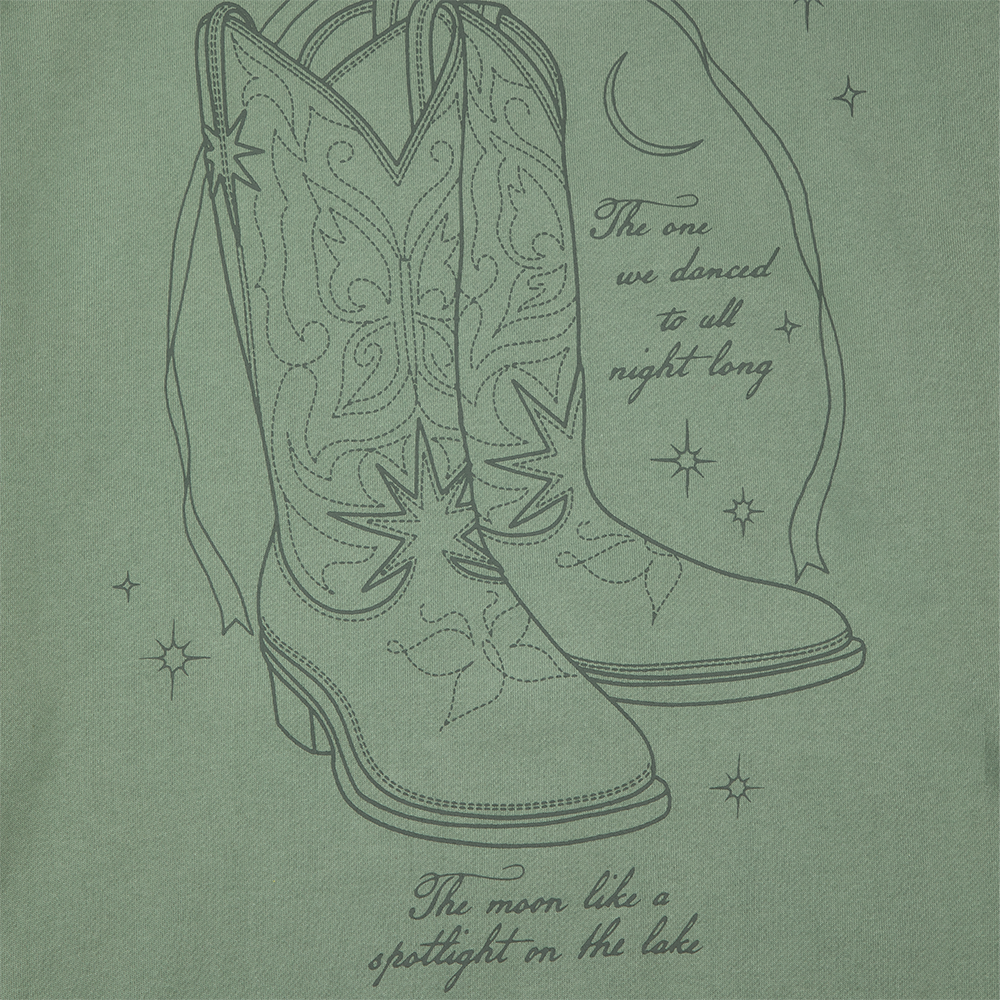 The one
we danced
to all
night long
The moon like a
spotlight on the lake